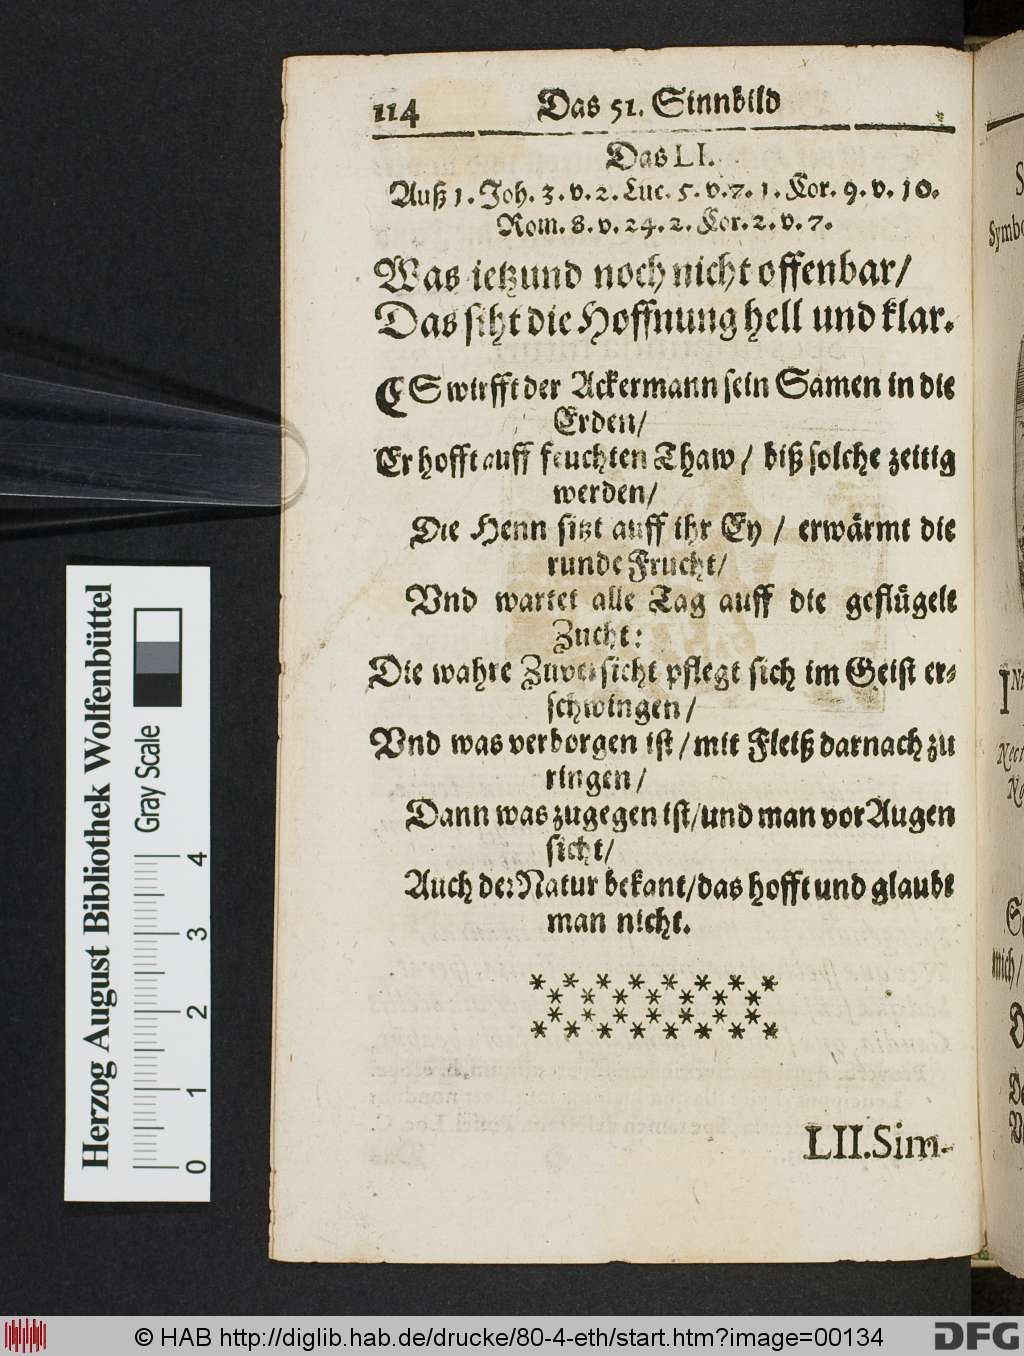 114 Das 51. Sinnbild
Das LI.
Auß 1. Joh. 3. v. 2. Luc. 5. v. 7. 1. Cor. 9. v. 10.
Rom. 8. v. 24. 2. Cor. 2. v. 7.
Was ietzund noch nicht offenbar/
Das siht die Hoffnung hell und klar.
ES wirfft der Ackermann sein Samen in die
Erden/
Er hofft auff feuchten Thaw / biß solche zeitig
werden/
Die Henn sitzt auff ihr Ey / erwärmt die
runde Frucht/
Vnd wartet alle Tag auff die geflügelt
Zucht:
Die wahre Zuversicht pflegt sich im Geist er-
schwingen /
Vnd was verborgen ist / mit Fleiß darnach zu
ringen /
Dann was zugegen ist/und man vor Augen
sicht/
Auch der Natur bekant/das hofft und glaubt
man nicht.
LII. Sim-
Herzog August Bibliothek Wolfenbüttel
Gray Scale
0 1 2 3 4
© HAB http://diglib.hab.de/drucke/80-4-eth/start.htm?image=00134
DFG